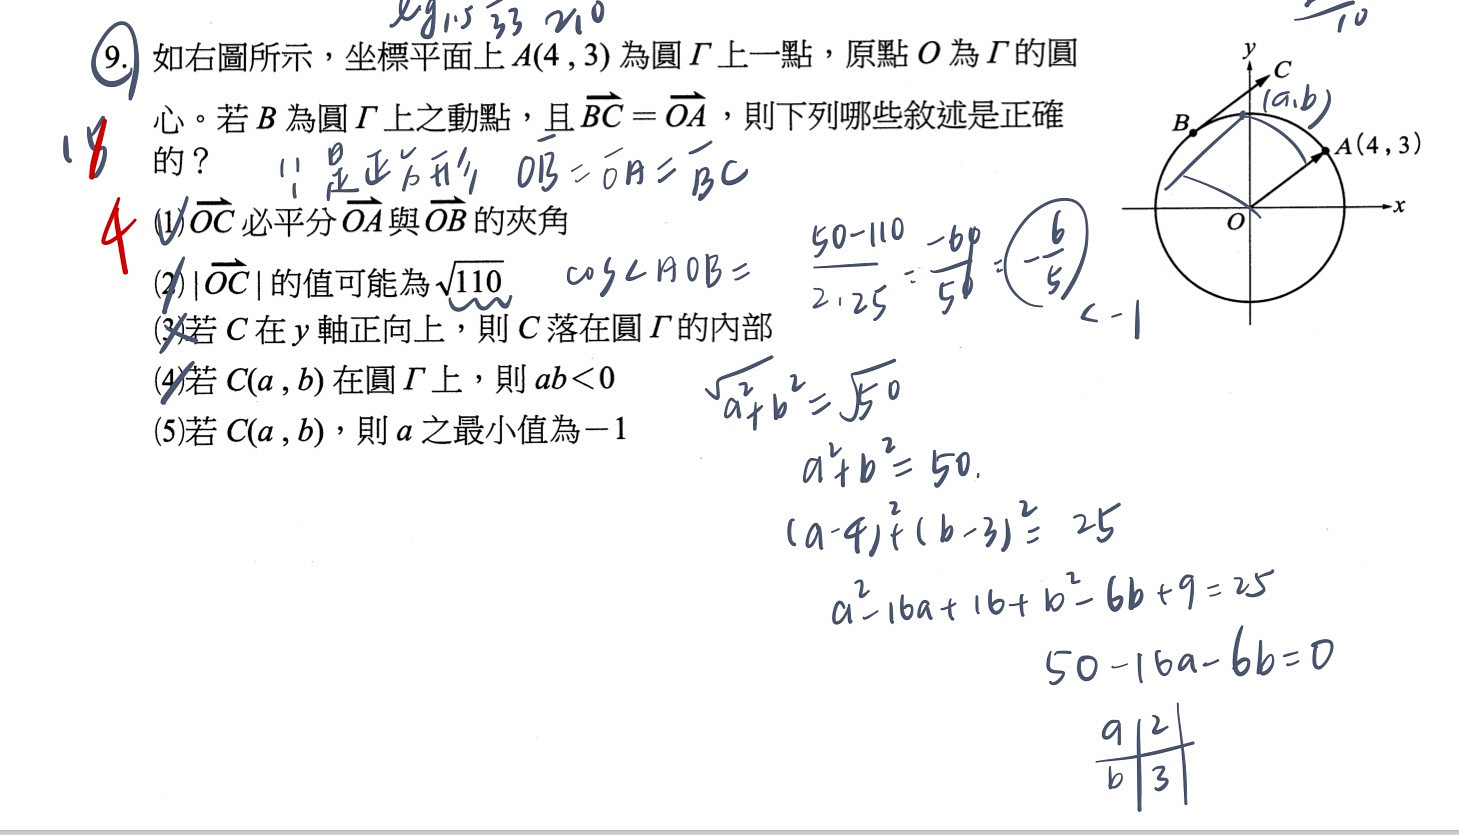 lg1.5 33 210
10
9. 如右圖所示，坐標平面上 A(4 , 3) 為圓 Γ 上一點，原點 O 為 Γ 的圓
心。若 B 為圓 Γ 上之動點，且 BC = OA，則下列哪些敘述是正確
的？
18
∵ 是正方形 OB = OA = BC
4
(1) OC 必平分 OA 與 OB 的夾角
(2) | OC | 的值可能為 √110
cos∠AOB = 50-110 / 2·25 = -60 / 50 = -6/5 < -1
(3) 若 C 在 y 軸正向上，則 C 落在圓 Γ 的內部
(4) 若 C(a , b) 在圓 Γ 上，則 ab<0
(5) 若 C(a , b)，則 a 之最小值為 −1
√a²+b² = √50
a²+b² = 50.
(a-4)²+(b-3)² = 25
a²-16a+16+b²-6b+9=25
50-16a-6b=0
a 2
b 3
y
C
(a,b)
B
A(4 , 3)
x
O